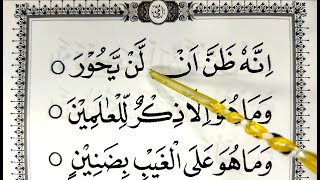 اِنَّهٗ ظَنَّ اَنْ لَّنْ يَّحُوْرَ ○
وَمَا هُوَ اِلَّا ذِكْرٌ لِّلْعٰلَمِيْنَ ○
وَمَا هُوَ عَلَى الْغَيْبِ بِضَنِيْنٍ ○